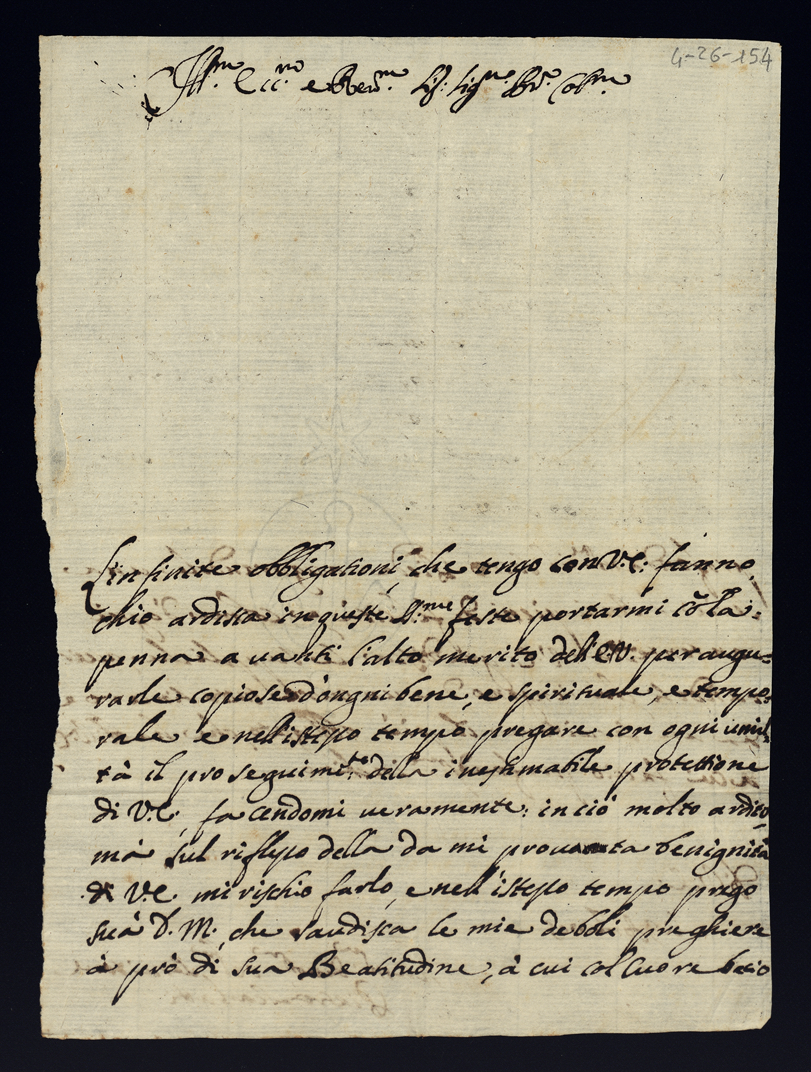 4-26-154
Ill.mo Ecc.mo e Rev.mo Sig: Sig.re P.rone Col.mo
L'infinite obbligationi, che tengo con V.E: fanno,
chio ardisca in queste S.me feste portarmi cõ la
penna avanti l'alto merito dell'E.V. per augu=
rarle copiose d'ongni bene, e spirituale, e tempo,
rale e nell'istesso tempo pregare con ogni umil
tà il proseguim.to della inestimabile protettione
di V.E, facendomi veramente: in ciò molto ardito,
mà sul riflesso della da mi provata benignità
di V.E mi rischio farlo, e nell'istesso tempo prego
suà D. M. che saudisca le mie deboli preghiere
à prò di sua Beatitudine, à cui col cuore bacio